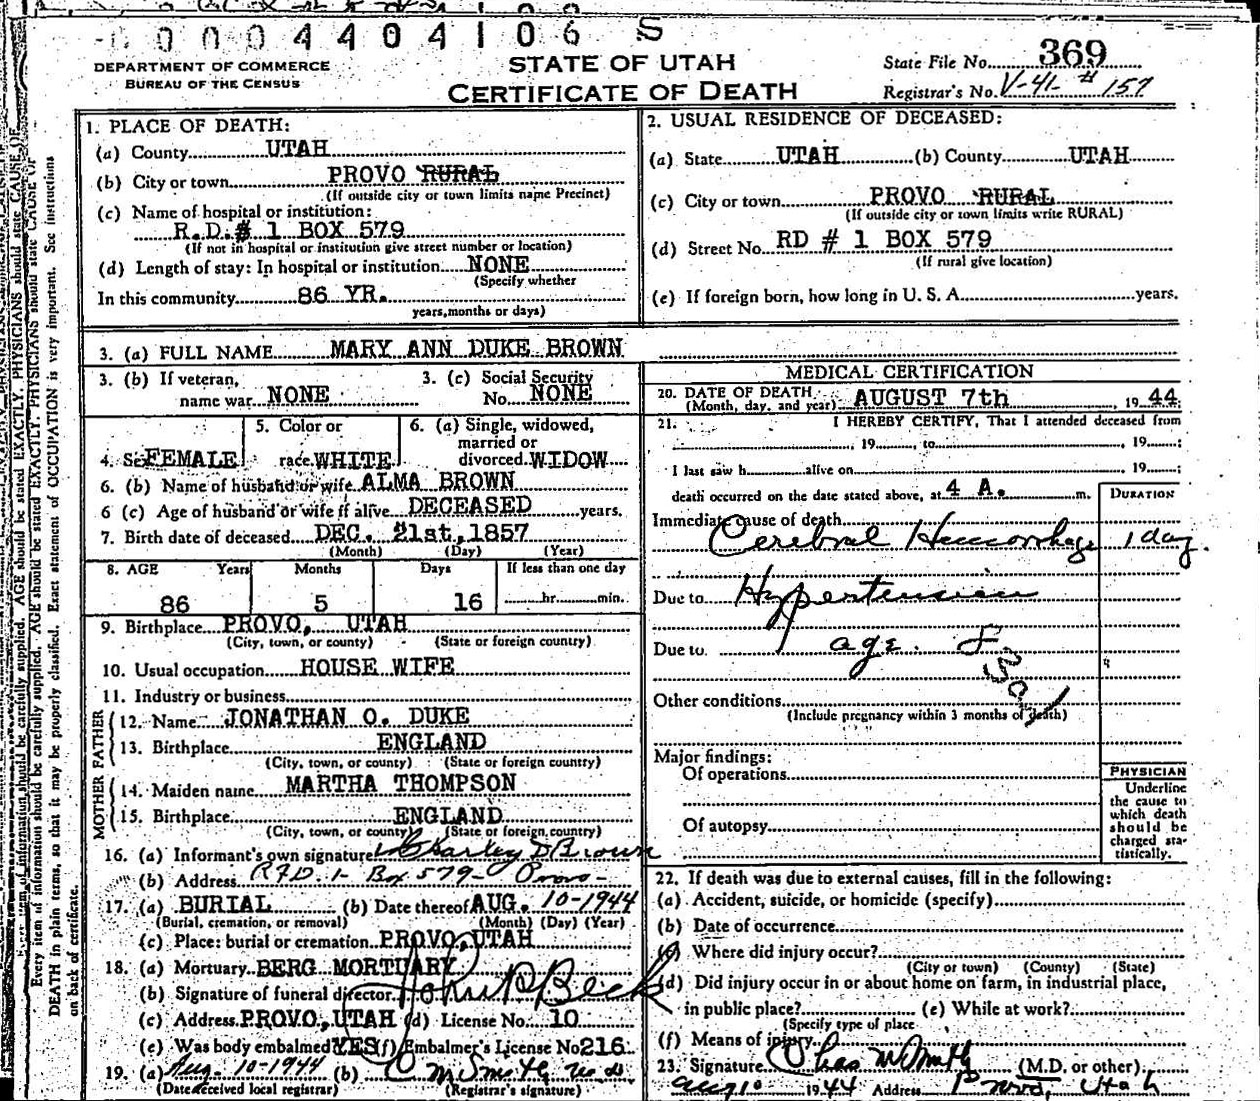 00004404106 S
DEPARTMENT OF COMMERCE
BUREAU OF THE CENSUS
STATE OF UTAH
CERTIFICATE OF DEATH
State File No. 369
Registrar's No. V-41- # 157
1. PLACE OF DEATH:
(a) County UTAH
(b) City or town PROVO RURAL
(If outside city or town limits name Precinct)
(c) Name of hospital or institution:
R.D.# 1 BOX 579
(If not in hospital or institution give street number or location)
(d) Length of stay: In hospital or institution NONE
(Specify whether
In this community 86 YR.
years, months or days)
2. USUAL RESIDENCE OF DECEASED:
(a) State UTAH (b) County UTAH
(c) City or town PROVO RURAL
(If outside city or town limits write RURAL)
(d) Street No. RD # 1 BOX 579
(If rural give location)
(e) If foreign born, how long in U. S. A. years.
3. (a) FULL NAME MARY ANN DUKE BROWN
3. (b) If veteran, name war NONE
3. (c) Social Security No. NONE
4. Sex FEMALE
5. Color or race WHITE
6. (a) Single, widowed, married or divorced WIDOW
6. (b) Name of husband or wife ALMA BROWN
6 (c) Age of husband or wife if alive DECEASED years.
7. Birth date of deceased DEC. 21st, 1857
(Month) (Day) (Year)
8. AGE Years Months Days If less than one day
86 5 16 hr. min.
9. Birthplace PROVO, UTAH
(City, town, or county) (State or foreign country)
10. Usual occupation HOUSE WIFE
11. Industry or business
FATHER
12. Name JONATHAN O. DUKE
13. Birthplace ENGLAND
(City, town, or county) (State or foreign country)
MOTHER
14. Maiden name MARTHA THOMPSON
15. Birthplace ENGLAND
(City, town, or county) (State or foreign country)
16. (a) Informant's own signature Charley D Brown
(b) Address R.F.D. 1- Box 579- Provo-
17. (a) BURIAL (b) Date thereof AUG. 10-1944
(Burial, cremation, or removal) (Month) (Day) (Year)
(c) Place: burial or cremation PROVO, UTAH
18. (a) Mortuary BERG MORTUARY
(b) Signature of funeral director
(c) Address PROVO, UTAH (d) License No. 10
(e) Was body embalmed YES (f) Embalmer's License No 216
19. (a) Aug. 10-1944 (b) C M Smith
(Date received local registrar) (Registrar's signature)
MEDICAL CERTIFICATION
20. DATE OF DEATH
(Month, day, and year) AUGUST 7th, 1944
21. I HEREBY CERTIFY, That I attended deceased from
19 to , 19 ;
I last saw h alive on 19 ;
death occurred on the date stated above, at 4 A. m.
DURATION
Immediate cause of death
Cerebral Hemorrhage 1 day.
Due to Hypertension
Due to age.
Other conditions
(Include pregnancy within 3 months of death)
Major findings:
Of operations
Of autopsy
PHYSICIAN
Underline
the cause to
which death
should be
charged sta-
tistically.
22. If death was due to external causes, fill in the following:
(a) Accident, suicide, or homicide (specify)
(b) Date of occurrence
(c) Where did injury occur?
(City or town) (County) (State)
(d) Did injury occur in or about home on farm, in industrial place,
in public place? (e) While at work?
(Specify type of place
(f) Means of injury
23. Signature Chas M Smith (M.D. or other)
Aug 10 1944 Address Provo, Utah
Every item of information should be carefully supplied. AGE should be stated EXACTLY. PHYSICIANS should state CAUSE OF
DEATH in plain terms, so that it may be properly classified. Exact statement of OCCUPATION is very important. See instructions
on back of certificate.